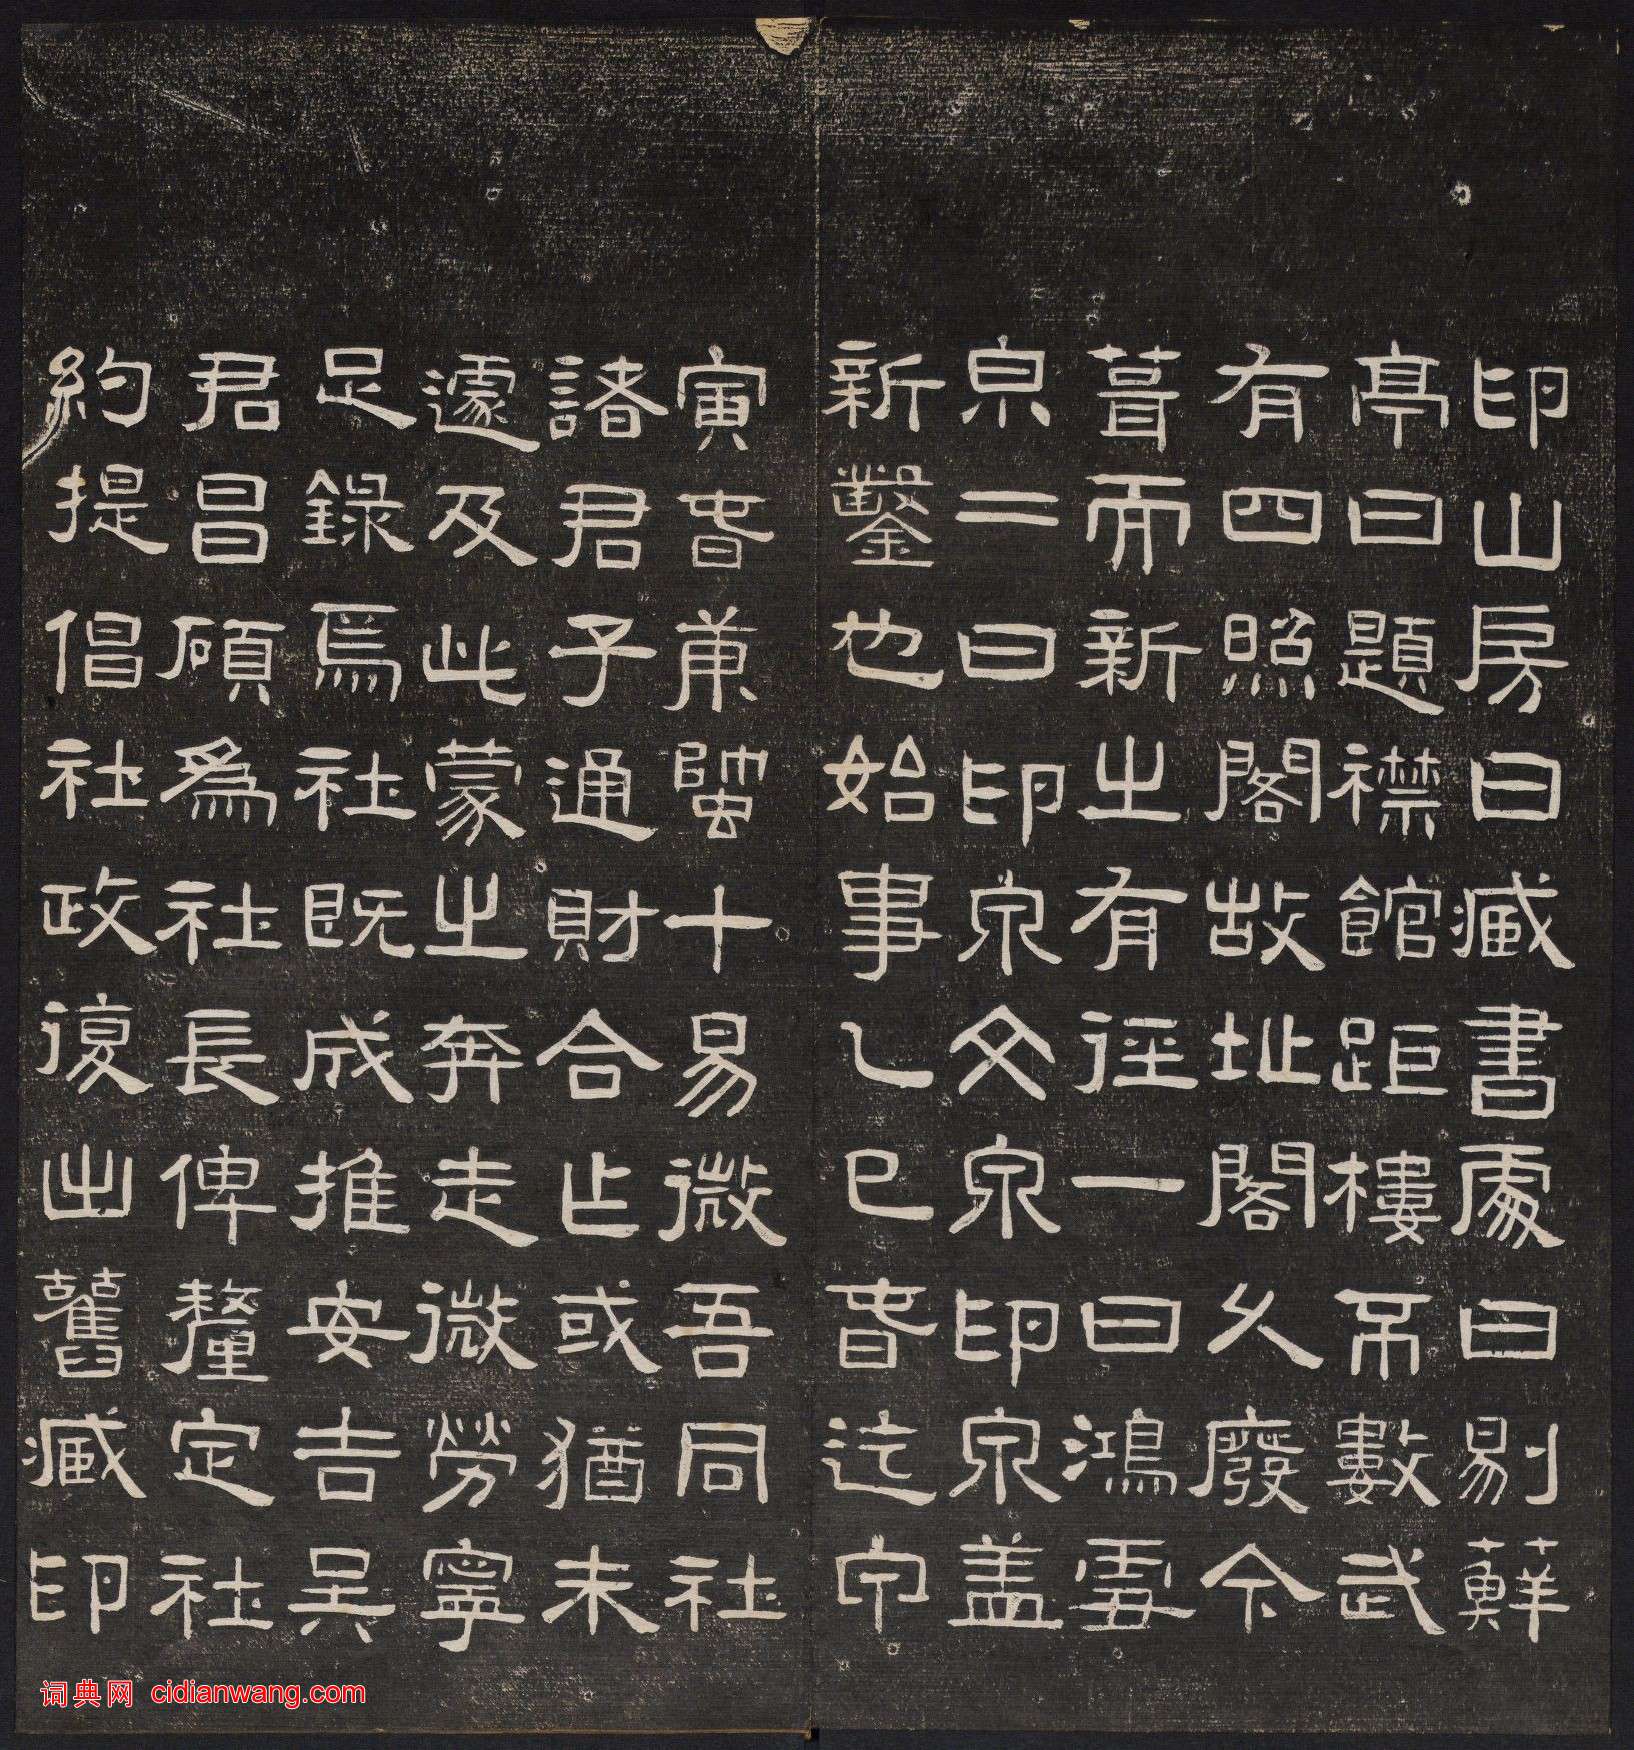 印山房曰藏書處曰剔蘚
亭曰題襟館距樓不數武
有四照閣故址閣久廢今
葺而新之有徑一曰鴻雪
泉二曰印泉文泉印泉蓋
新鑿也始事乙巳春迄甲
寅春十易微吾同社
諸君子通財合止或猶未
遽及此蒙之奔走微勞寧
足錄焉社既成推安吉吳
君昌碩為社長俾釐定社
約提倡社政復出舊藏印
词典网 cidianwang.com